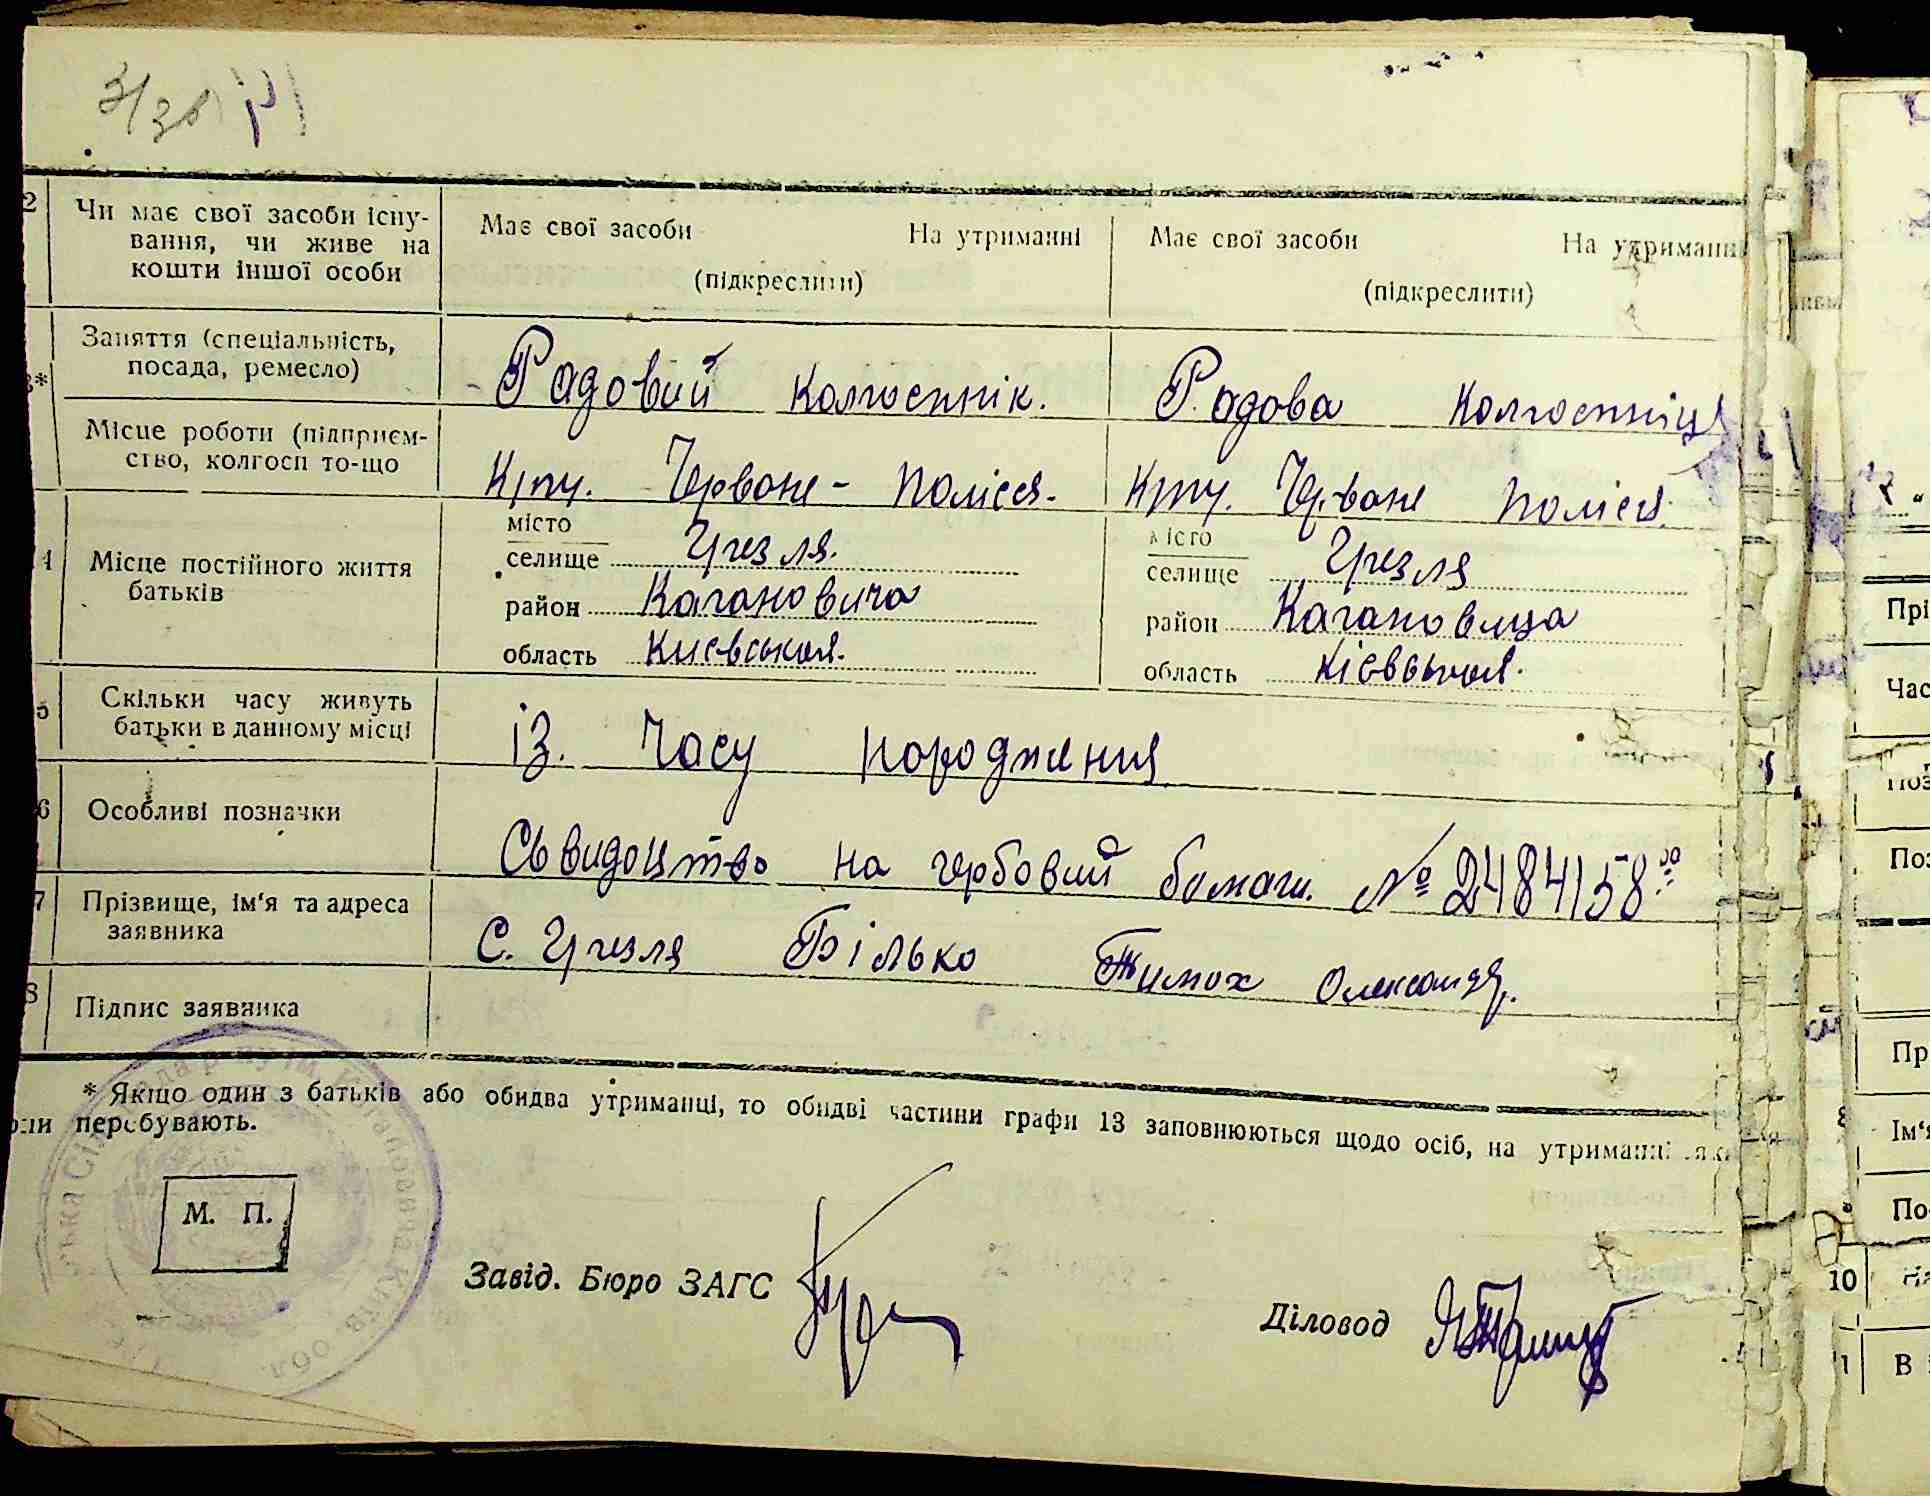 3/зв
2 Чи має свої засоби існу-
вання, чи живе на
кошти іншої особи
Має свої засоби На утриманні
(підкреслити)
Має свої засоби На утриманні
(підкреслити)
3* Заняття (спеціальність,
посада, ремесло)
Радовий колгоспнік. Радова колгоспніця
Місце роботи (підприєм-
ство, колгосп то-що
Червоне - Полісся. Червоне Полісся.
14 Місце постійного життя
батьків
місто
селище Грезля.
район Кагановича
область Києвськая.
місто
селище Грезля
район Кагановича
область Кієвськая.
5 Скільки часу живуть
батьки в данному місці
із. часу народження
6 Особливі позначки
Сьвидоцтво на гербовий бомаги. № 2484158
7 Прізвище, ім'я та адреса
заявника
С. Грезля Білько Тимох Олександр.
8 Підпис заявника
* Якщо один з батьків або обидва утриманці, то обидві частини графи 13 заповнюються щодо осіб, на утриманні яки
вони перебувають.
М. П.
Завід. Бюро ЗАГС
Діловод
Прі
Час
Поз
Поз
Пр
Ім'я
По-
10
11 В